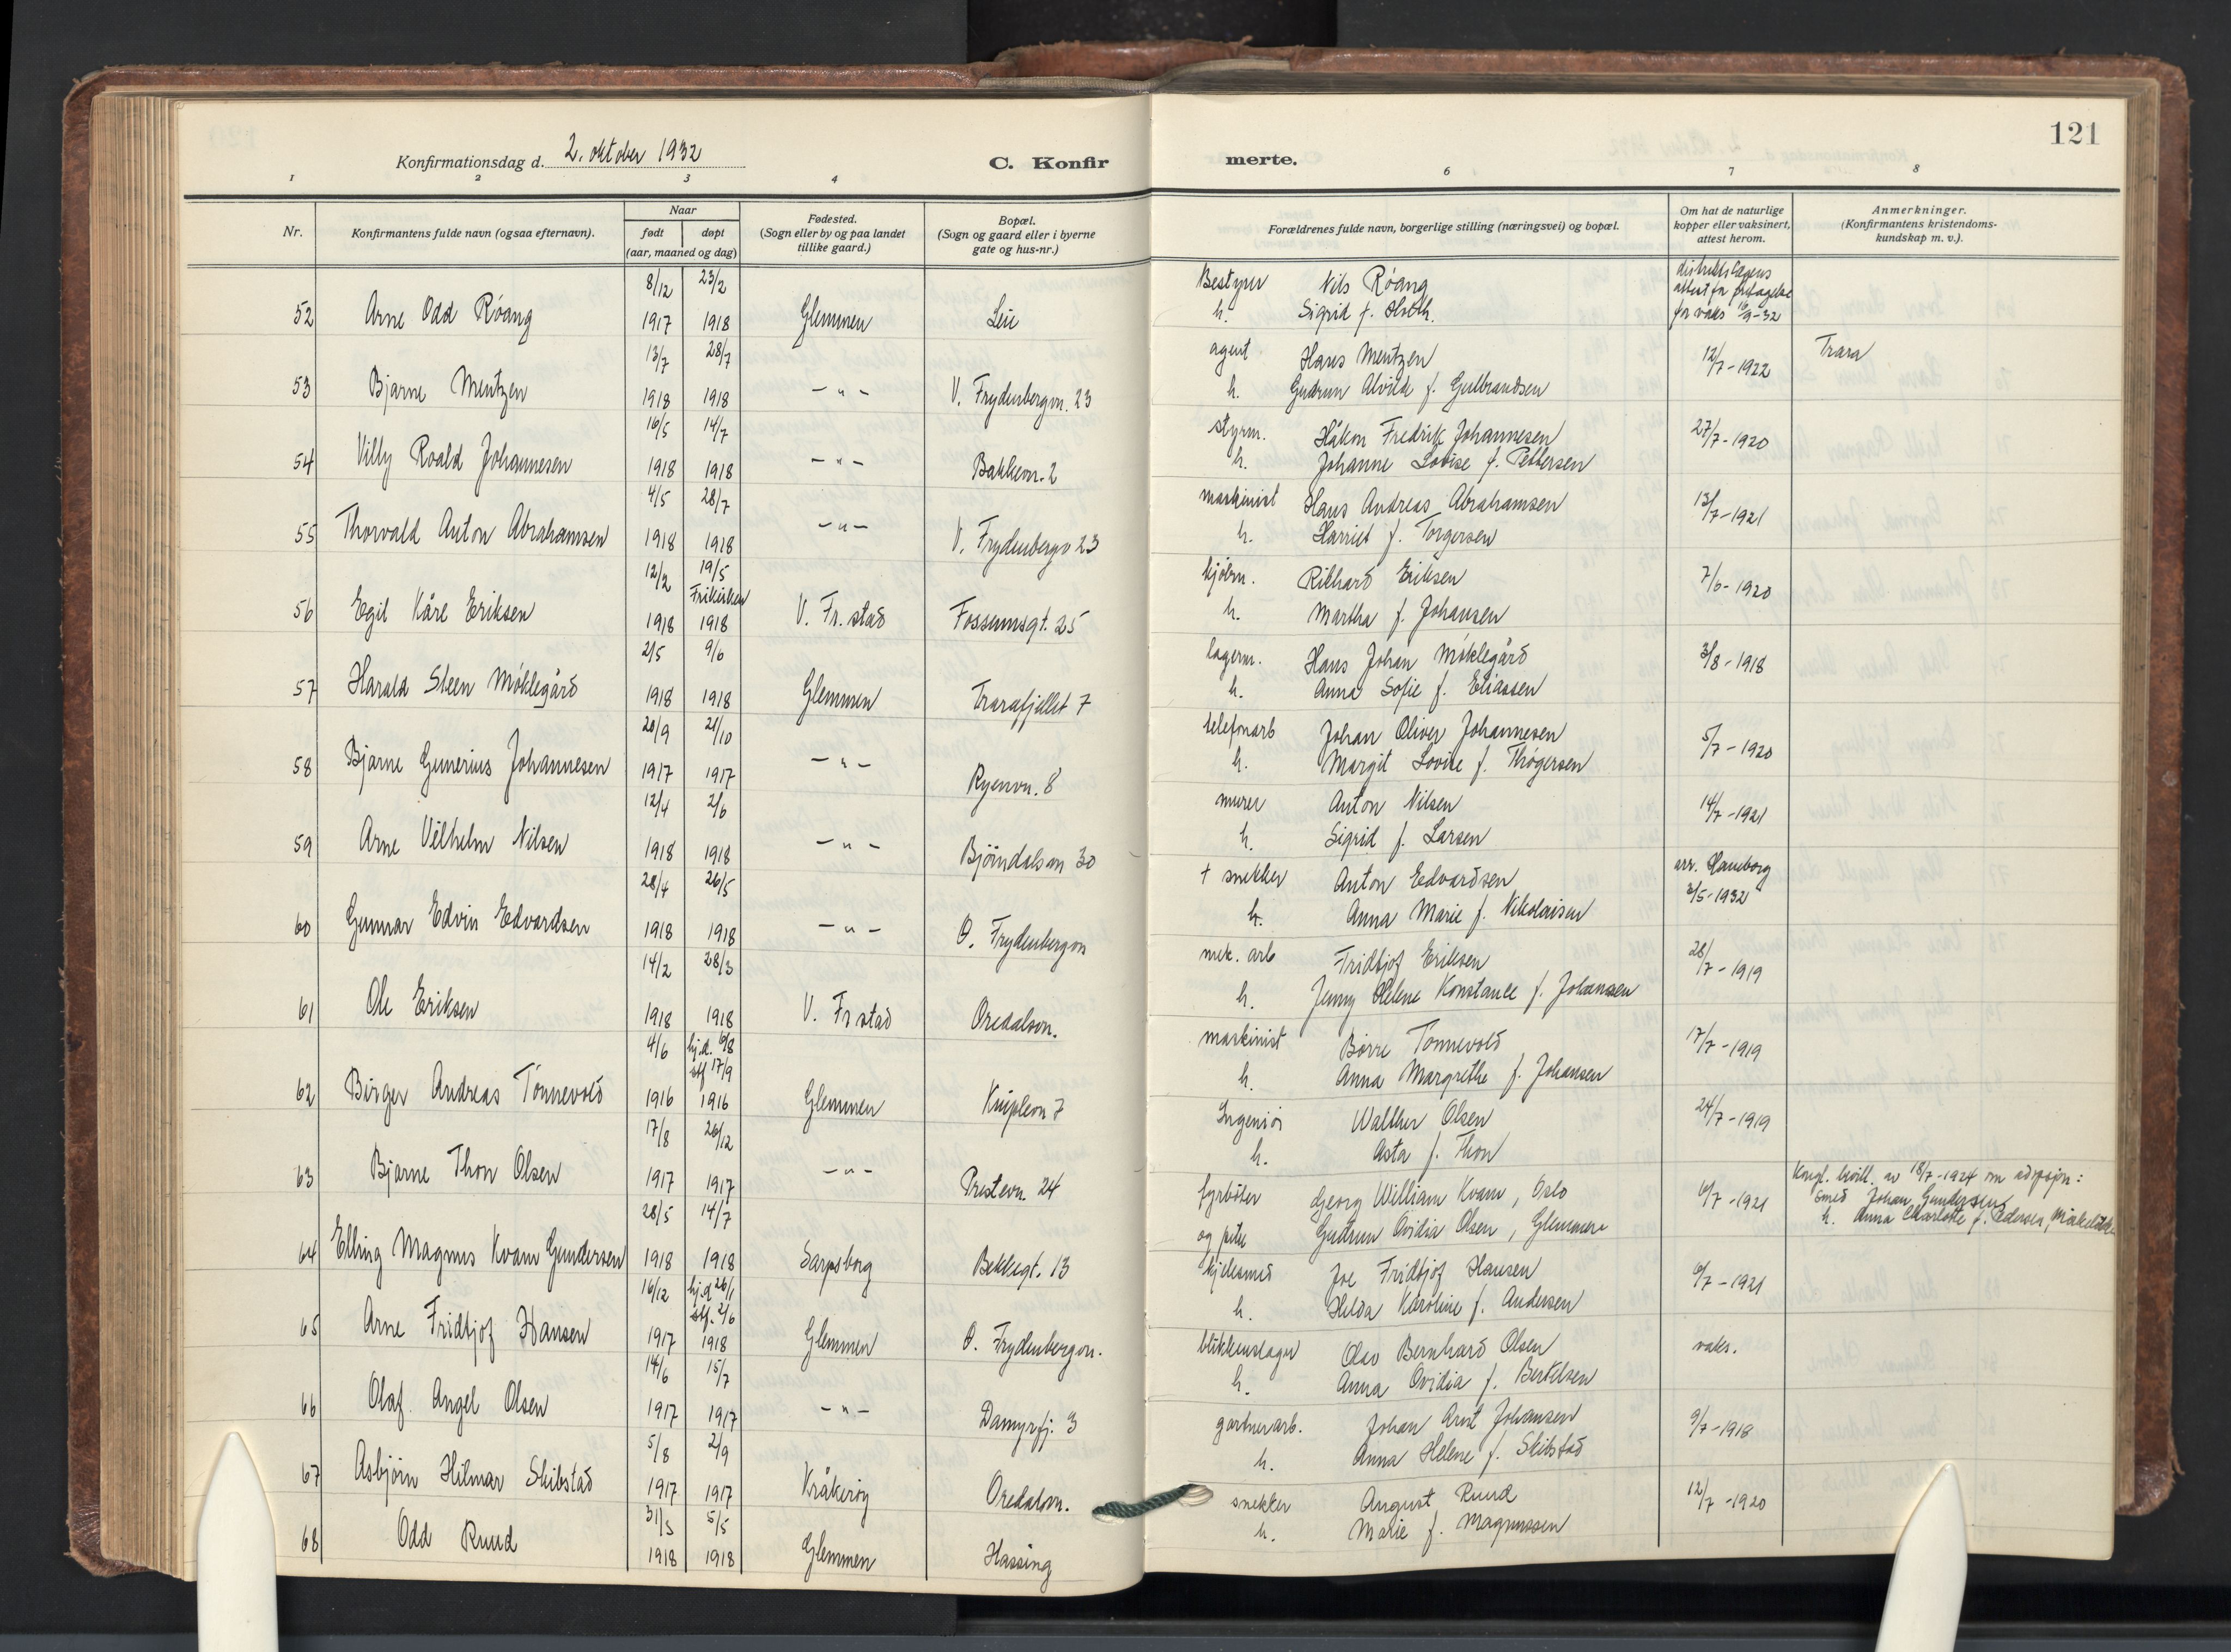 Konfirmationsdag d. 2. oktober 1932
C. Konfir
merte.
121
1 2 3 4 6 7 8
Nr.
Konfirmantens fulde navn (ogsaa efternavn).
Naar
født
døpt
(aar, maaned og dag)
Fødested.
(Sogn eller by og paa landet
tillike gaard.)
Bopæl.
(Sogn og gaard eller i byerne
gate og hus-nr.)
Forældrenes fulde navn, borgerlige stilling (næringsvei) og bopæl.
Om hat de naturlige
kopper eller vaksinert,
attest herom.
Anmerkninger.
(Konfirmantens kristendoms-
kundskap m. v.).
8/12 23/2 Bestyrer Nils Röang
52 Arne Odd Röang 1917 1918 Glemmen Leie h. Sigrid f.
attest for
for vaks 16/9-32
13/7 28/7 agent Hans Mentzen 12/7-1922 Trara
53 Bjarne Mentzen 1918 1918 -"- V. Frydenbergvn. 23 h. Gudrun Alvild f. Gulbrandsen
16/5 14/7 styrm. Håkon Fredrik Johannesen 27/7-1920
54 Villy Roald Johannesen 1918 1918 -"- Bakkevn. 2 h. Johanne Lovise f. Pettersen
4/5 28/7 maskinist Hans Andreas Abrahamsen 13/7-1921
55 Thorvald Anton Abrahamsen 1918 1918 -"- V. Frydenbergv 23 h. Harriet f. Torgersen
12/2 19/5 kjøbm. Rikhard Eriksen 7/6-1920
Frikirken
56 Egil Kåre Eriksen 1918 1918 V. Fr.stad Fossumsgt. 25 h. Martha f. Johansen
2/5 9/6 lagerm. Hans Johan Möklegård 3/8-1918
57 Harald Steen Möklegård 1918 1918 Glemmen Trarafjellet 7 h. Anna Sofie f. Eliassen
20/9 21/10 telefonarb Johan Oliver Johannesen 5/7-1920
58 Bjarne Gunerius Johannesen 1917 1917 -"- Ryenvn. 8 h. Margit Lovise f. Thögersen
12/4 2/6 murer Anton Nilsen 14/7-1921
59 Arne Vilhelm Nilsen 1918 1918 -"- Bjöndalsvn 30 h. Sigrid f. Larsen
28/4 26/5 + snekker Anton Edvardsen arr. Haneborg
3/5-1932
60 Gunnar Edvin Edvardsen 1918 1918 -"- Ø. Frydenbergvn h. Anna Marie f. Nikolaisen
14/2 28/3 mek. arb Fridtjof Eriksen 28/7-1919
61 Ole Eriksen 1918 1918 V. Fr stad Oredalsvn. h. Jenny Helene Konstance f. Johansen
4/6 hj.d. 6/8 maskinist Börre Tönnevold 17/7-1919
stf 17/9
62 Birger Andreas Tönnevold 1916 1916 Glemmen Kniplevn 7 h. Anna Margrethe f. Johansen
17/8 26/12 Ingeniör Walther Olsen 24/7-1919
63 Bjarne Thon Olsen 1917 1917 -"- Prestevn. 24 h. Asta f. Thon
28/5 14/7 fyrböter Georg William Kvam, Oslo 6/7-1921
Kongl. bevill. av 18/7-1924 om adopsjon:
smed Johan Gundersen
h. Anna Charlotte f. Pedersen,
64 Elling Magnus Kvam Gundersen 1918 1918 Sarpsborg Bekkegt. 13 og pike Gudrun Ovidia Olsen, Glemmen
16/12 hj.d 26/1 kjelesmed Joe Fridtjof Hansen 6/7-1921
stf. 2/6
65 Arne Fridtjof Hansen 1917 1918 Glemmen Ø. Frydenbergvn. h. Hilda Karoline f. Andersen
14/6 15/7 blikkenslager Olav Bernhard Olsen vaks.
66 Olaf Angel Olsen 1917 1917 -"- Damyrfj. 3 h. Anna Ovidia f. Bertelsen
5/8 2/9 gartnerarb. Johan Arnt Johansen 9/7-1918
67 Asbjörn Hilmar Skibstad 1917 1917 Kråkeröy Oredalsvn. h. Anna Helene f. Skibstad
31/3 5/5 snekker August Ruud 12/7-1920
68 Odd Ruud 1918 1918 Glemmen Hassing h. Marie f. Magnussen